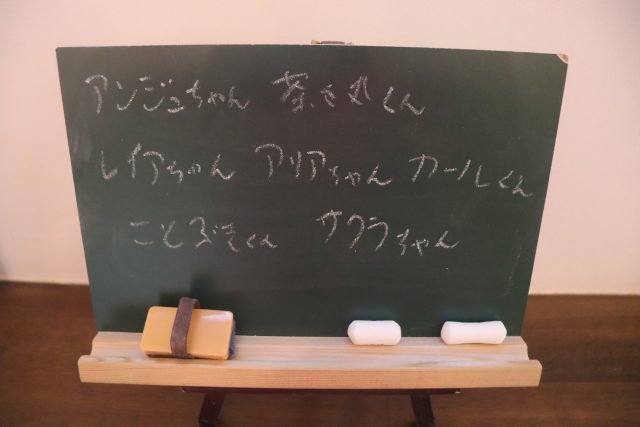 アンジュちゃん 茶々丸くん
レイアちゃん アリアちゃん カールくん
ことぶきくん サクラちゃん